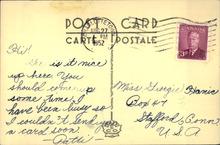 POST CARD
CARTE POSTALE
27
1952
Hi!
is it nice
up here. You
should come up
some time. I
have been busy so
I couldn't send you
a card soon.
Patti
Miss Georgie
Box 47
Stafford, Conn.
U S A